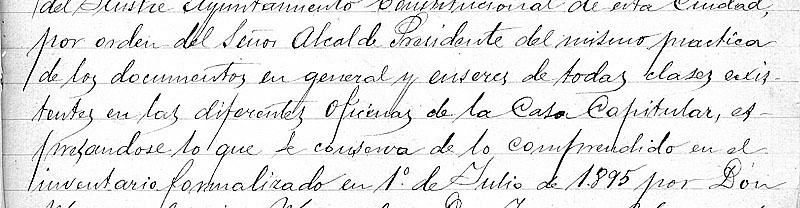 del Ilustre Ayuntamiento Constitucional de esta Ciudad,
por orden del Señor Alcalde Presidente del mismo practica
de los documentos en general y enseres de todas clases exis-
tentes en las diferentes oficinas de la Casa Capitular, es-
presandose lo que se conserva de lo comprendido en el
inventario formalizado en 1º de Julio de 1895 por Don